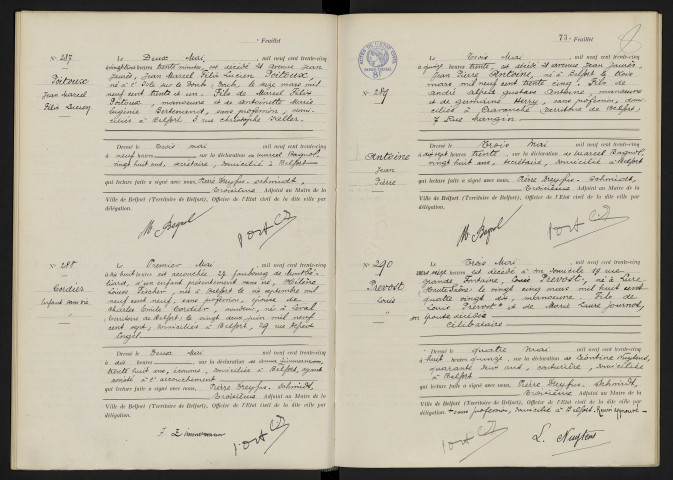 Feuillet
N° 287
Poitoux
Jean Marcel
Félix Lucien
Le Deux Mai, mil neuf cent trente-cinq
à vingt deux heures trente minutes, est décédé 21 avenue Jean
Jaurès, Jean Marcel Félix Lucien Poitoux,
né à l'Isle sur le Doubs, Doubs, le seize mars mil
neuf cent trente et un. Fils de Marcel Félix
Poitoux, manoeuvre et de Antoinette Marie
Eugénie, sans profession, domiciliés
à Belfort, 3 rue Christophe Keller.
Dressé le trois mai, mil neuf cent trente-cinq
à neuf heures, sur la déclaration de Marcel Bagnol,
vingt huit ans, secrétaire, domicilié à Belfort
qui lecture faite a signé avec nous, Pierre Dreyfus-Schmidt,
Troisième Adjoint au Maire de la
Ville de Belfort (Territoire de Belfort), Officier de l'Etat civil de la dite ville par
délégation.
N° 288
Cordier
Enfant sans vie
Le Premier Mai, mil neuf cent trente-cinq
à dix huit heures est accouchée 27 faubourg de Montbéliard,
d'un enfant présentement sans vie, Hélène
Louise Fischer, née à Belfort le dix septembre mil
neuf cent neuf, sans profession, épouse de
Charles Emile Cordier, né à
Territoire de Belfort, le vingt deux juin mil neuf
cent sept, domiciliés à Belfort, 29 rue
Engel
Dressé le Deux Mai, mil neuf cent trente-cinq
à dix heures, sur la déclaration de Anna Zimmermann,
trente huit ans, domiciliée à Belfort, ayant
assisté à l'accouchement
qui lecture faite a signé avec nous, Pierre Dreyfus-Schmidt,
Troisième Adjoint au Maire de la
Ville de Belfort (Territoire de Belfort), Officier de l'Etat civil de la dite ville par
délégation.
Zimmermann
73e Feuillet
N° 289
Antoine
Jean
Pierre
Le Trois Mai, mil neuf cent trente-cinq
à quinze heures, est décédé 21 avenue Jean Jaurès
Jean Pierre Antoine, né à Belfort le trois
mars mil neuf cent trente cinq. Fils de
André Alfred Gustave Antoine, manoeuvre
et de Germaine Herry, sans profession, domiciliés
à Cravanche Territoire de Belfort,
7 Rue Mangin
Dressé le Trois Mai, mil neuf cent trente-cinq
à dix sept heures trente, sur la déclaration de Marcel Bagnol,
vingt huit ans, secrétaire, domicilié à Belfort
qui lecture faite a signé avec nous, Pierre Dreyfus-Schmidt,
Troisième Adjoint au Maire de la
Ville de Belfort (Territoire de Belfort), Officier de l'Etat civil de la dite ville par
délégation.
N° 290
Prevost
Louis
"
Le Trois Mai, mil neuf cent trente-cinq
vers seize heures est décédé à son domicile 19 rue
Grande Fontaine, Louis Prevost, né à Lure
Haute Saône le vingt cinq mars mil huit cent
quatre vingt dix, manoeuvre. Fils de
Louis Prevost et de Marie Laure Journot,
époux décédés
Célibataire
Dressé le quatre Mai, mil neuf cent trente-cinq
à huit heures quinze, sur la déclaration de Léontine Nuytens,
quarante neuf ans, domiciliée
à Belfort
qui lecture faite a signé avec nous, Pierre Dreyfus-Schmidt,
Troisième Adjoint au Maire de la
Ville de Belfort (Territoire de Belfort), Officier de l'Etat civil de la dite ville par
délégation. + sans profession, domicilié à Belfort.
L. Nuytens